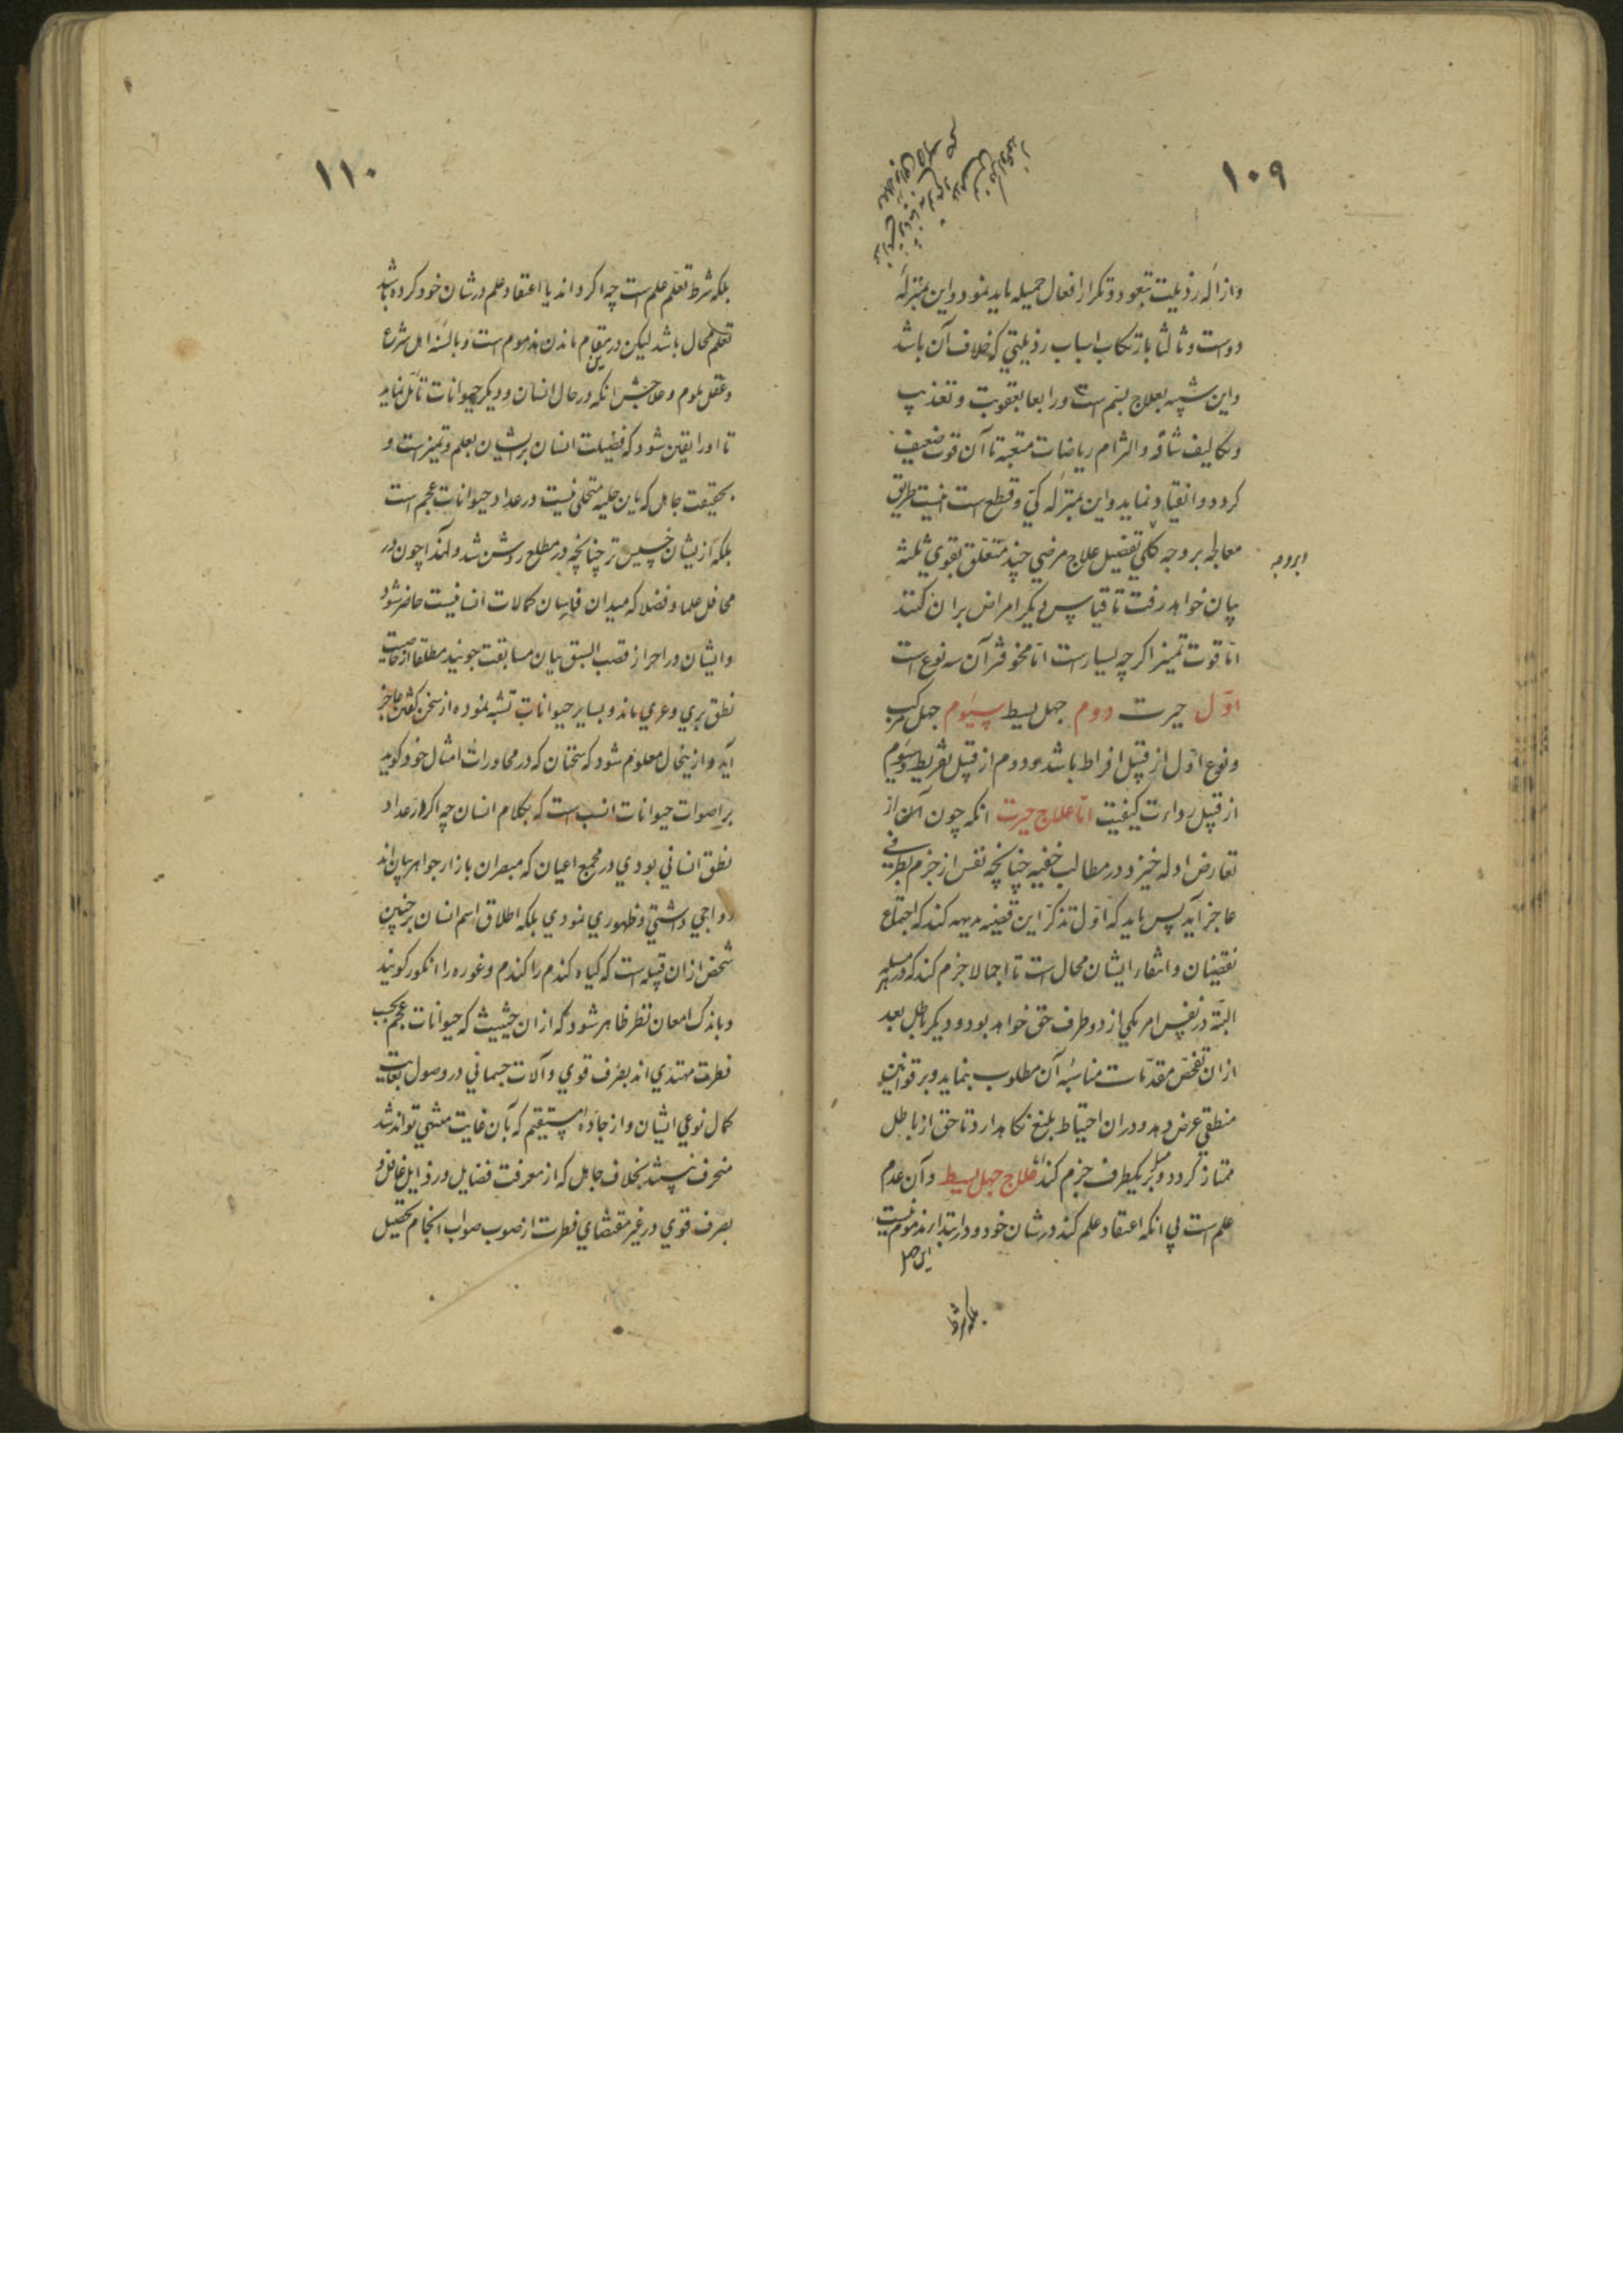 ۱۰۹
وازاله رذیلت بتعود و تکرار افعال جمیله باید نمود و این بمنزله
دواست و ثالثا بارتکاب اسباب رذیلتی که خلاف آن باشد
و این شبیه بعلاج بسم است و رابعا بعقوبت و تعذیب
و تکالیف شاقه و التزام ریاضات متعبه تا آن قوت ضعیف
کردد و انقیاد نماید و این بمنزله کی و قطع است اینست طریق
معالجه بر وجه کلی تفصیل علاج مرضی چند متعلق بقوی ثلثه
بیان خواهد رفت تا قیاس دیکر امراض بران کنند
اما قوت تمیز اکرچه بسیارست اما مخوفتر آن سه نوع است
اول حیرت دوم جهل بسیط سیوم جهل مرکب
و نوع اول از قبیل افراط باشد و دوم از قبیل تفریط و سیوم
از قبیل رداءت کیفیت اما علاج حیرت انکه چون آن از
تعارض ادله خیزد در مطالب خفیه چنانچه نفس از جزم بطرفی
عاجز آید پس باید که اول تذکر این قضیه بدیهه کند که اجتماع
نقیضان و انتفاء ایشان محال است تا اجمالا جزم کند که در هر مسئله
البته در نفس امر یکی از دو طرف حق خواهد بود و دیکر باطل بعد
ازان تفحص مقدمات مناسبه آن مطلوب بنماید و بر قوانین
منطقی عرض دهد و دران احتیاط بلیغ نکاهدارد تا حق از باطل
ممتاز کردد و بر یکطرف جزم کند اما علاج جهل بسیط و آن عدم
علم است بی انکه اعتقاد علم کند در شان خود و در ابتدا مذموم نیست
بلکه شرط
۱۱۰
بلکه شرط تعلم علم است چه اکر داند یا اعتقاد علم در شان خود کرده باشد
تعلم محال باشد لیکن درین مقام ماندن مذموم است و بالسنه اهل شرع
و عقل ملوم و علاجش انکه در حال انسان و دیکر حیوانات تأمل نماید
تا او را یقین شود که فضیلت انسان بر ایشان بعلم و تمیزست و
بحقیقت جاهل که باین حلیه متحلی نیست در عداد حیوانات عجم است
بلکه ازیشان خسیس تر چنانچه در مطلع روشن شد و لهذا چون در
محافل علما و فضلا که میدان فارسان کمالات انسانیست حاضر شود
و ایشان در احراز قصب السبق بیان مسابقت جویند مطلقا از خاصیت
نطق بری و عری ماند و بسایر حیوانات تشبه نموده از سخن کفتن عاجز
آید و ازینحال معلوم شود که سخنان که در محاورات امثال خود کوید
براصوات حیوانات انسب است که بکلام انسان چه اکر از عداد
نطق انسانی بودی در مجمع اعیان که مبصران بازار جواهر بیان اند
رواجی داشتی و ظهوری نمودی بلکه اطلاق اسم انسان بر چنین
شخص ازان قبیله است که کیاه کندم را کندم و غوره را انکور کویند
و باندک امعان نظر ظاهر شود که ازان حیثیت که حیوانات عجم بحسب
فطرت مهتدی اند بصرف قوی و آلات جسمانی در وصول بغایت
کمال نوعی ایشان و از جاده مستقیم که بآن غایت منتهی تواند شد
منحرف نیستند بخلاف جاهل که از معرفت فضایل و رذایل غافل و
بصرف قوی در غیر مقتضای فطرت از صوب صواب انجام تحصیل